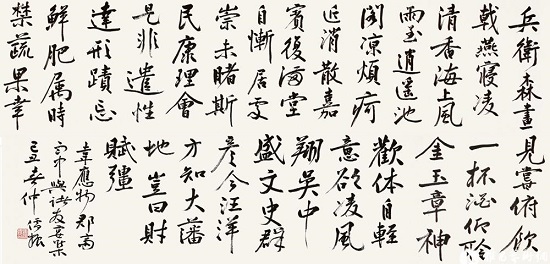 兵衛森畫
戟燕寢凝
清香海上風
雨至逍遙池
閣涼煩疴
近消散嘉
賓復滿堂
自慚居處
崇未睹斯
民康理會
是非遣性
達形蹟忘
鮮肥属時
禁蔬果幸
見嘗俯飲
一杯酒仰聆
金玉章神
歡體自輕
意欲凌風
翔吳中
盛文史群
彦今汪洋
方知大藩
地豈曰財
賦疆
韋應物郡斋雨
中與諸友宴集
春仲